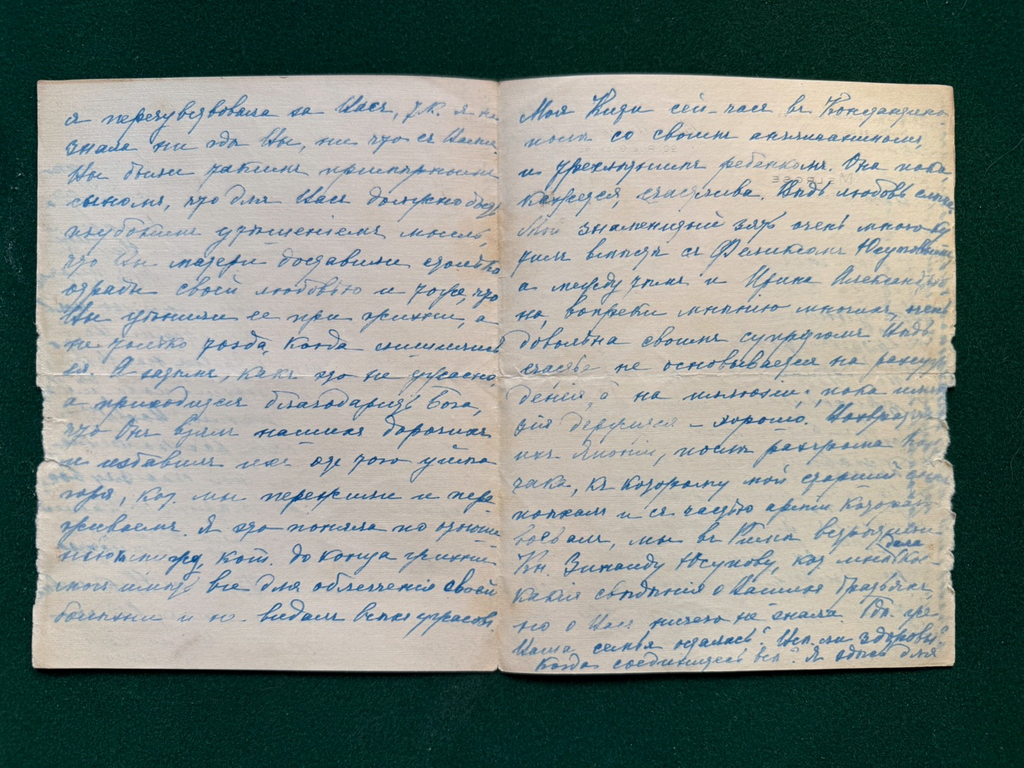 я перечувствовала за Васъ, т.к. я не
знала ни гдѣ Вы, ни что съ Вами
Вы были такимъ примѣрнымъ
сыномъ, что для Васъ должно быть
глубокимъ утѣшеніемъ мысль,
что Вы матери доставили столько
отрады своей любовью и тоже что
Вы утѣшили ее при жизни, а
не только тогда, когда лишились
ея. А затѣмъ, какъ это не ужасно,
а приходится благодарить Бога,
что Онъ взялъ нашихъ дорогихъ
и избавилъ ихъ отъ того
горя, кот. мы пережили и пере
живаемъ. Я это поняла по
кот. до конца жизни
все для облегченія своей
болѣзни и не видалъ всѣхъ ужасовъ
Моя Кити сей-часъ въ Константино
полѣ со своимъ англичаниномъ
и трехлѣтнимъ ребенкомъ. Она пока,
кажется, счастлива. Вѣдь любовь слѣпа
Мой знаменитый зять очень много ку
тилъ вмѣстѣ съ Феликсомъ Юсуповымъ
а между тѣмъ и Ирина Александров
на, вопреки мнѣнію многихъ, очень
довольна своимъ супругомъ. Вѣдь
счастье не основывается на разсуж
деніи, а на иллюзіи; пока иллю
зія держится – хорошо. Возвратясь
изъ Японіи, послѣ разгрома Кол
чака, къ которому мой старшій сынъ
попалъ и съ частью арміи котораго
воевалъ, мы въ Римѣ встрѣтили
Кн. Зинаиду Юсупову, кот. мнѣ дала кое-
какія свѣдѣнія о Вашихъ братьяхъ,
но о Васъ ничего не знала. Гдѣ же
Ваша семья осталась? Всѣ ли здоровы?
Когда соединитесь всѣ? Я здѣсь для